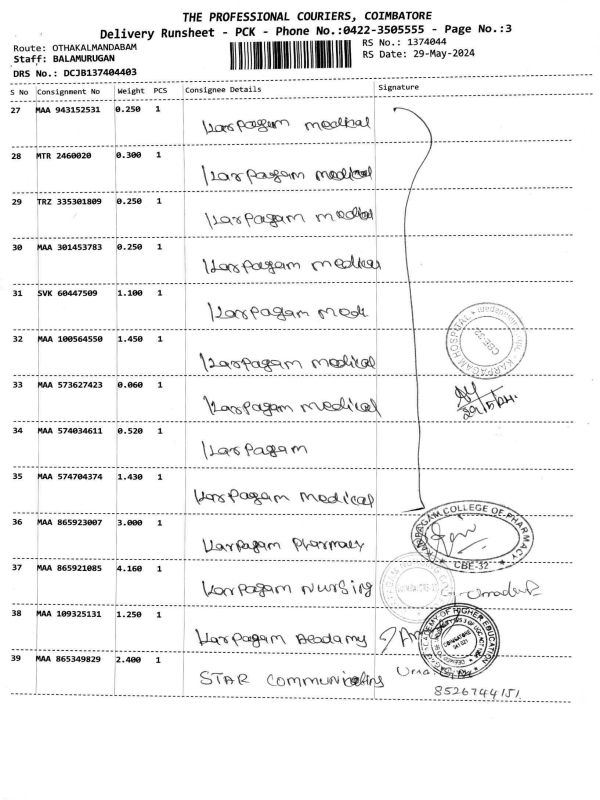 THE PROFESSIONAL COURIERS, COIMBATORE
Delivery Runsheet - PCK - Phone No.:0422-3505555 - Page No.:3
Route: OTHAKALMANDABAM
RS No.: 1374044
Staff: BALAMURUGAN
RS Date: 29-May-2024
DRS No.: DCJB137404403
S No Consignment No Weight PCS Consignee Details Signature
27 MAA 943152531 0.250 1 Karpagam medical
28 MTR 2460020 0.300 1 Karpagam medical
29 TRZ 335301809 0.250 1 Karpagam medical
30 MAA 301453783 0.250 1 Karpagam medical
31 SVK 60447509 1.100 1 Karpagam medi
32 MAA 100564550 1.450 1 Karpagam medical
KARPAGAM HOSPITAL
CBE-32
33 MAA 573627423 0.060 1 Karpagam medical
34 MAA 574034611 0.520 1 Karpagam
35 MAA 574704374 1.430 1 Karpagam medical
36 MAA 865923007 3.000 1 Karpagam Pharmacy
KARPAGAM COLLEGE OF PHARMACY
CBE-32
37 MAA 865921085 4.160 1 Karpagam Nursing
38 MAA 109325131 1.250 1 Karpagam Acadamy
ACADEMY OF HIGHER EDUCATION
39 MAA 865349829 2.400 1 STAR Communications
8526744151